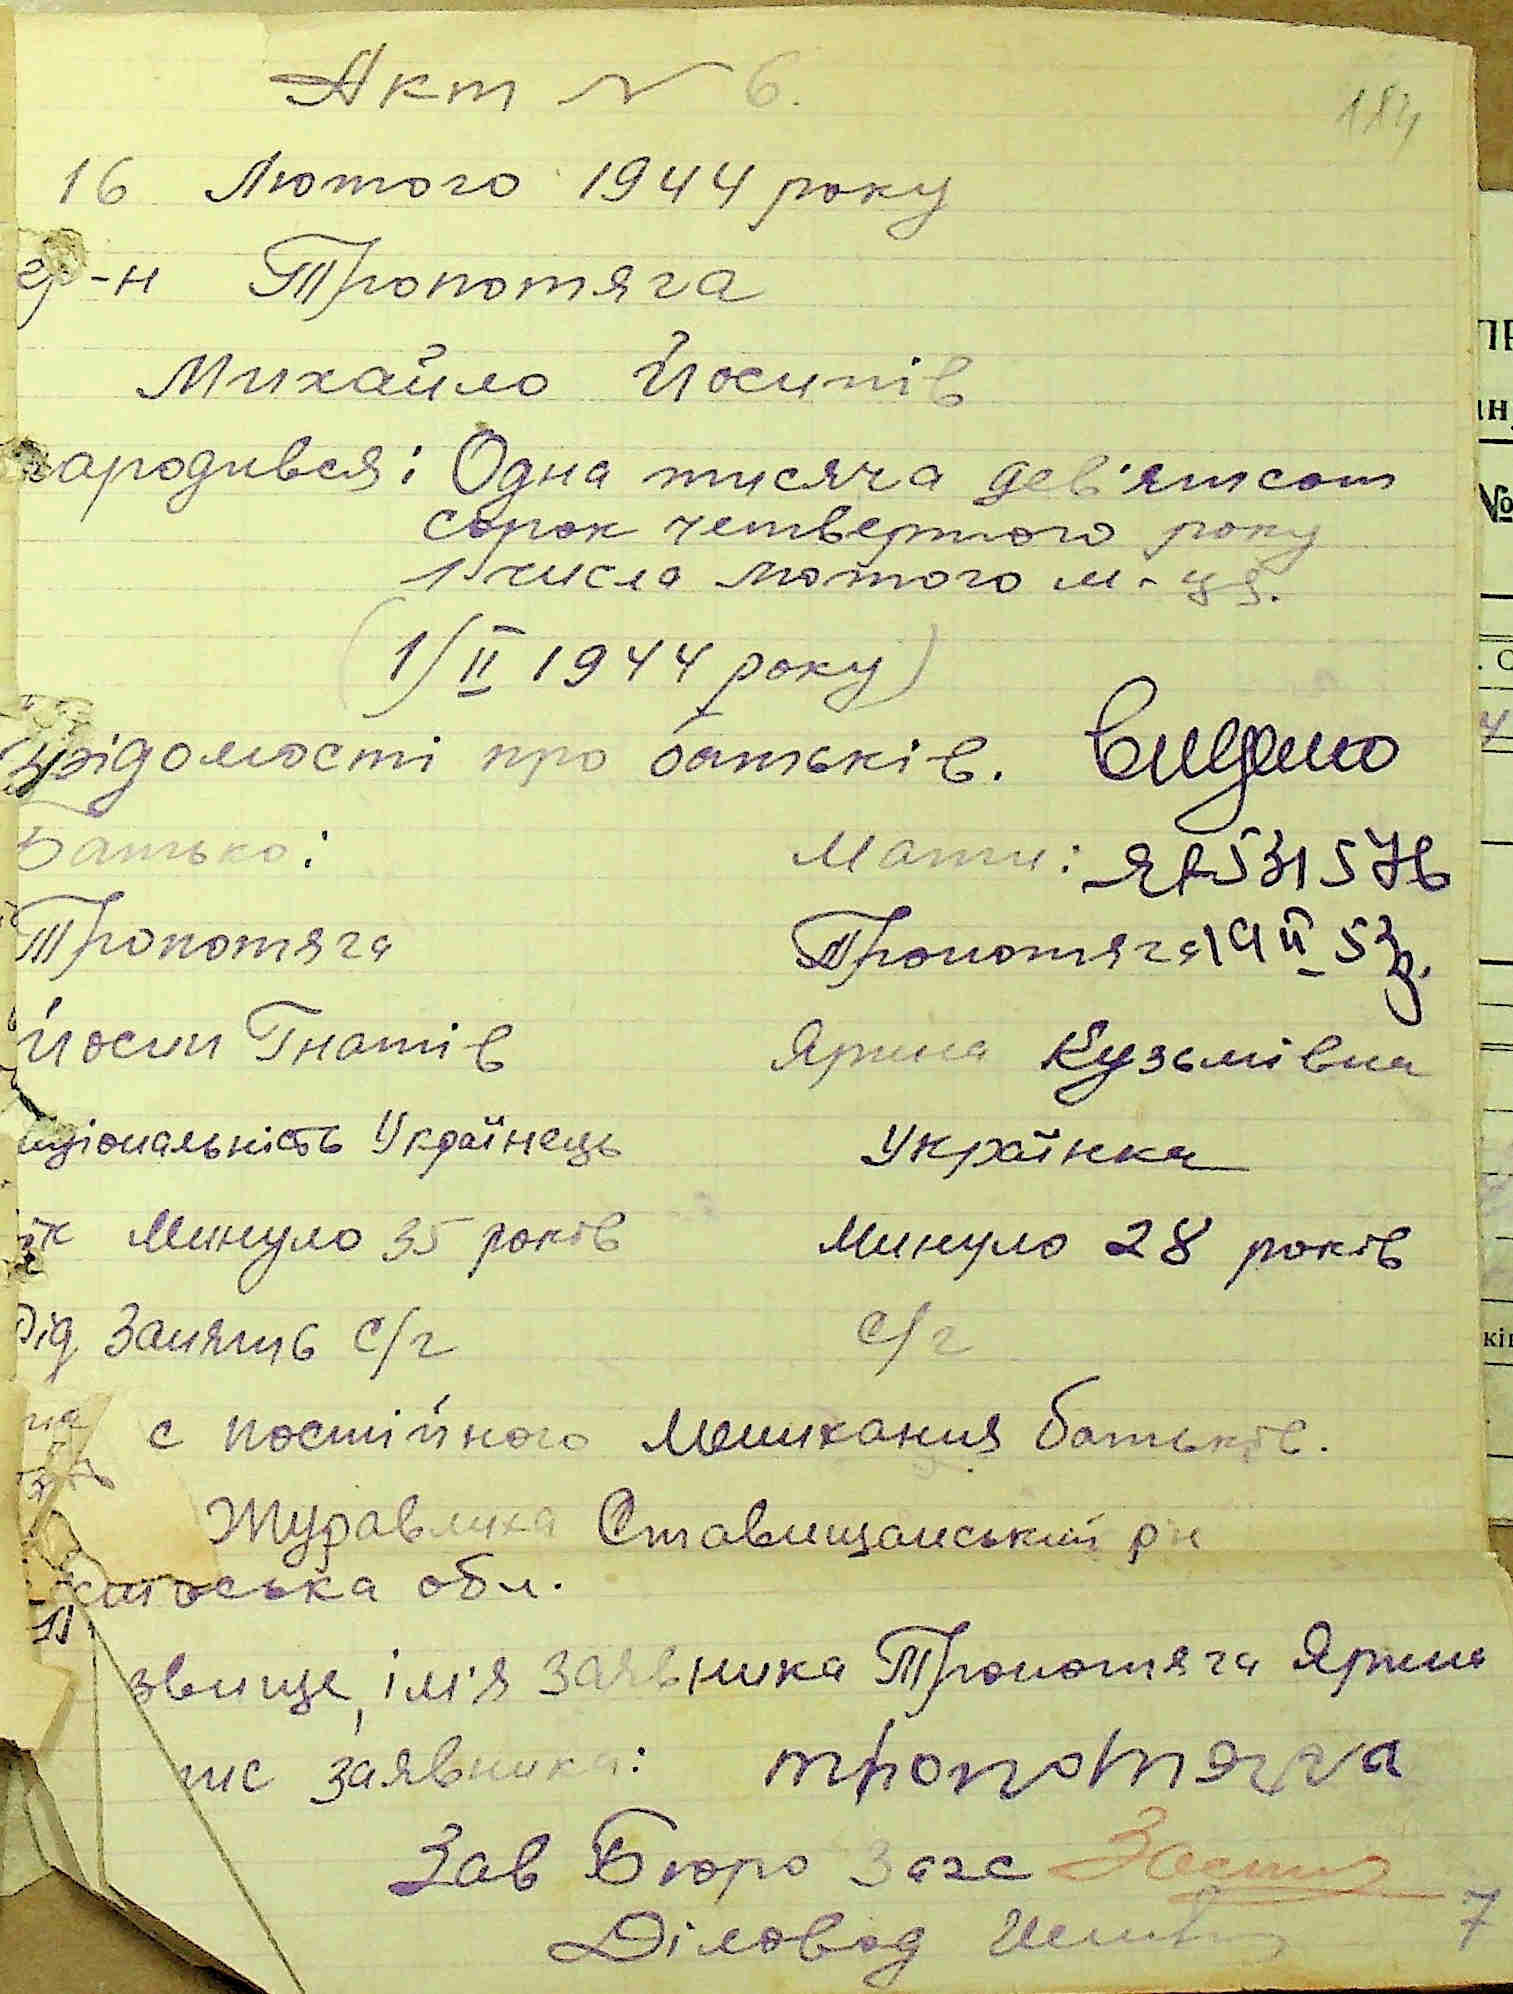 Акт № 6.
184
16 Лютого 1944 року
гр-н Тропотяга
Михайло Йосипів
народився: Одна тисяча дев'ятсот
сорок четвертого року
1 числа лютого м-ця.
(1/II 1944 року)
Відомості про батьків. Видано
Батько: Мати: ЯР 531576
Тропотяга Тропотяга 19 II 53 р.
Йосип Гнатів Ярина Кузьмівна
ціональність Українець Українка
ік Минуло 35 років Минуло 28 років
Рід Занять с/г с/г
с постійного Мешкання батьків.
Журавлиха Ставищанський рн
ська обл.
звище, ім'я заявника Тропотяга Ярина
пис заявника: тропотяга
Зав Бюро Загс
Діловод
7